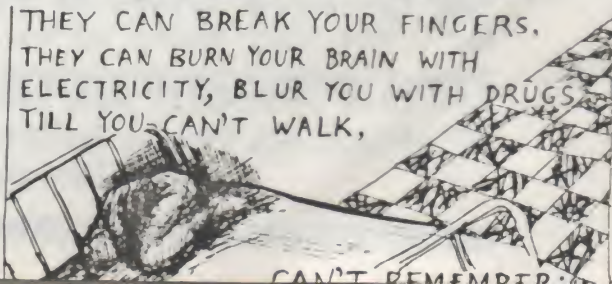 THEY CAN BREAK YOUR FINGERS.
THEY CAN BURN YOUR BRAIN WITH
ELECTRICITY, BLUR YOU WITH DRUGS
TILL YOU CAN'T WALK,
CAN'T REMEMBER